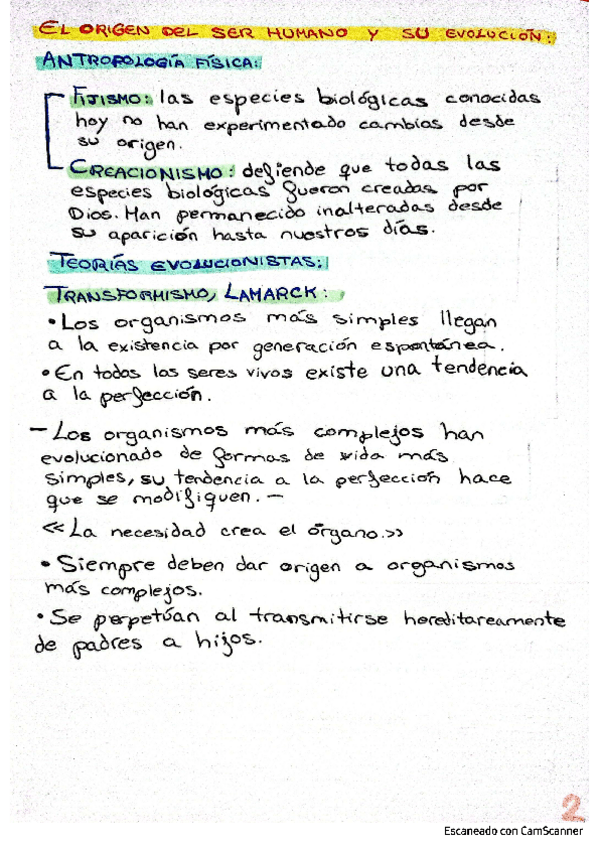 EL ORIGEN DEL SER HUMANO Y SU EVOLUCIÓN:
ANTROPOLOGÍA FÍSICA:
FIJISMO: las especies biológicas conocidas
hoy no han experimentado cambios desde
su origen.
CREACIONISMO: defiende que todas las
especies biológicas fueron creadas por
Dios. Han permanecido inalteradas desde
su aparición hasta nuestros días.
TEORÍAS EVOLUCIONISTAS:
TRANSFORMISMO, LAMARCK:
• Los organismos más simples llegan
a la existencia por generación espontánea.
• En todos los seres vivos existe una tendencia
a la perfección.
- Los organismos más complejos han
evolucionado de formas de vida más
simples, su tendencia a la perfección hace
que se modifiquen. -
<< La necesidad crea el órgano.>>
• Siempre deben dar origen a organismos
más complejos.
• Se perpetúan al transmitirse hereditareamente
de padres a hijos.
2
Escaneado con CamScanner